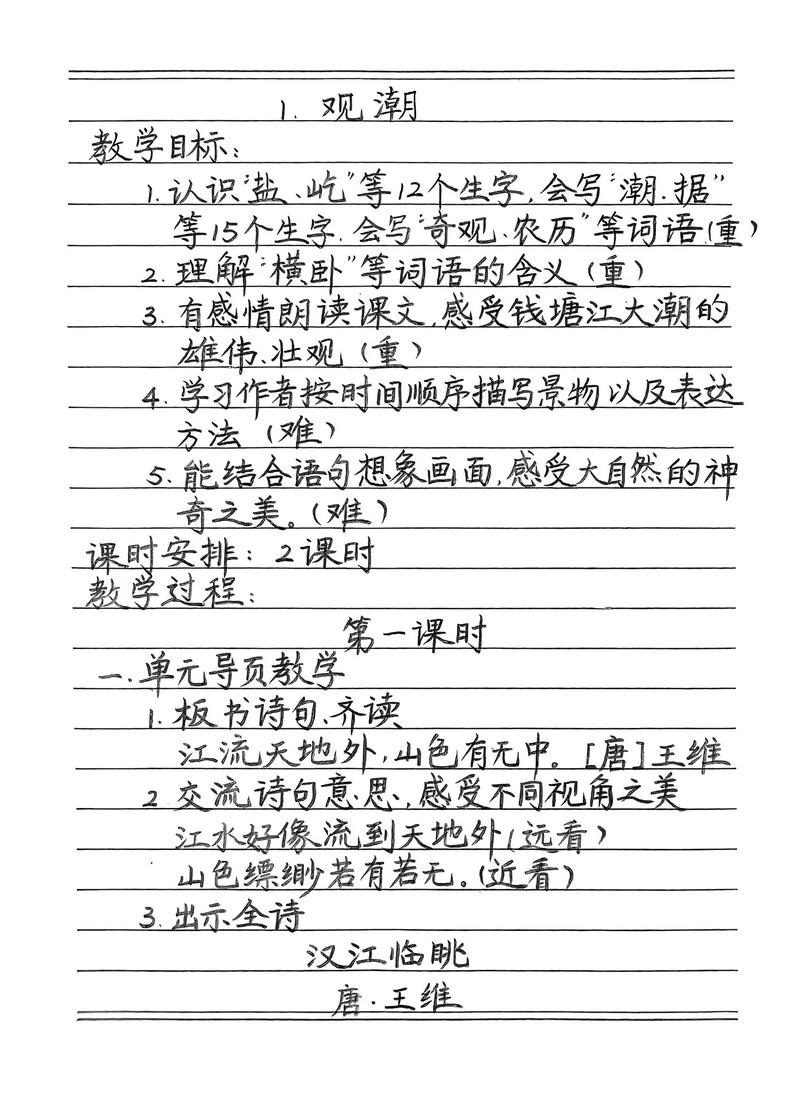 1. 观潮
教学目标：
1. 认识"盐、屹"等12个生字，会写"潮、据"
等15个生字，会写"奇观、农历"等词语（重）
2. 理解"横卧"等词语的含义（重）
3. 有感情朗读课文，感受钱塘江大潮的
雄伟、壮观（重）
4. 学习作者按时间顺序描写景物以及表达
方法（难）
5. 能结合语句想象画面，感受大自然的神
奇之美。（难）
课时安排：2课时
教学过程：
第一课时
一. 单元导页教学
1. 板书诗句、齐读
江流天地外，山色有无中。[唐]王维
2 交流诗句意思，感受不同视角之美
江水好像流到天地外（远看）
山色缥缈若有若无。（近看）
3. 出示全诗
汉江临眺
唐·王维